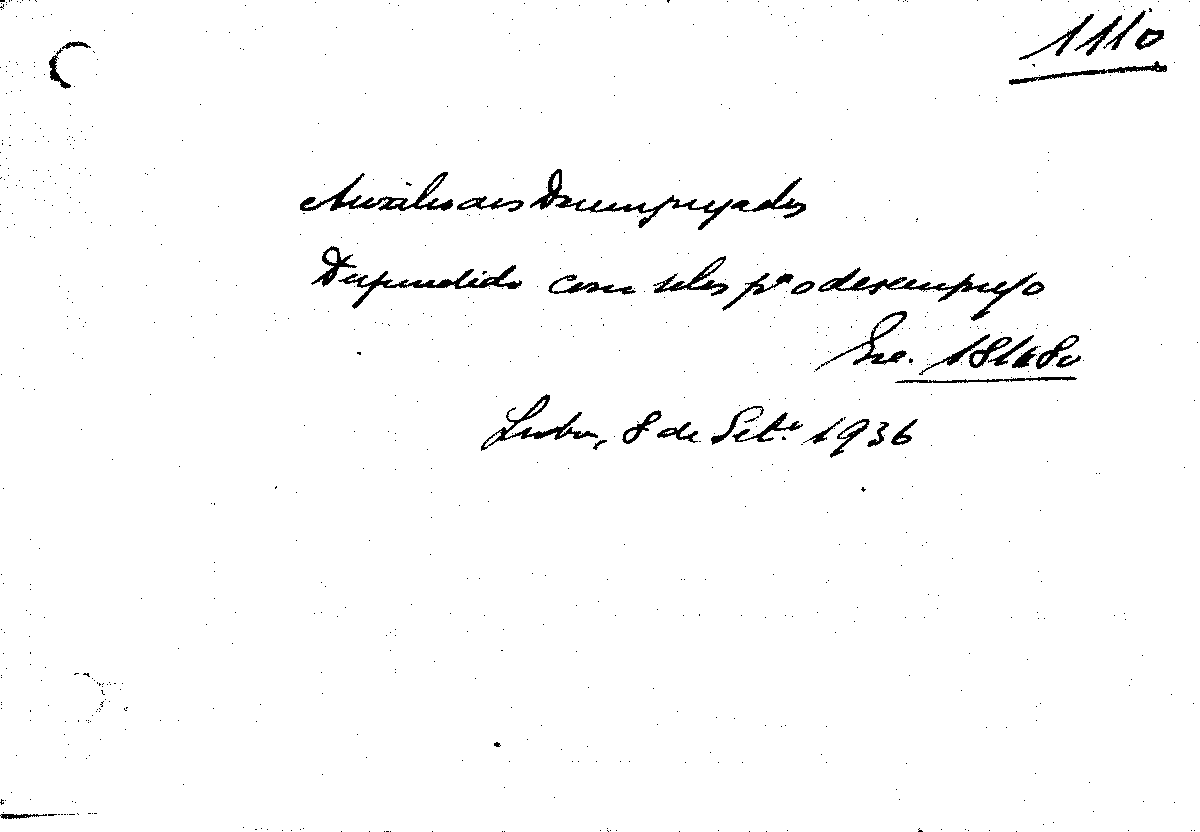 1110
Auxilio aos Desempregados
Despendido com selos pª o desemprego
Esc. 181$80
Lisboa, 8 de Setº 1936